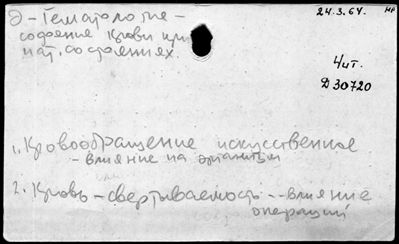 Э - Гематология -
24.3.64.
состояние крови при
пат. состояниях.
Чит.
Д 30720
1. Кровообращение искусственное
- влияние на организм
2. Кровь - свертываемость -- влияние
операций